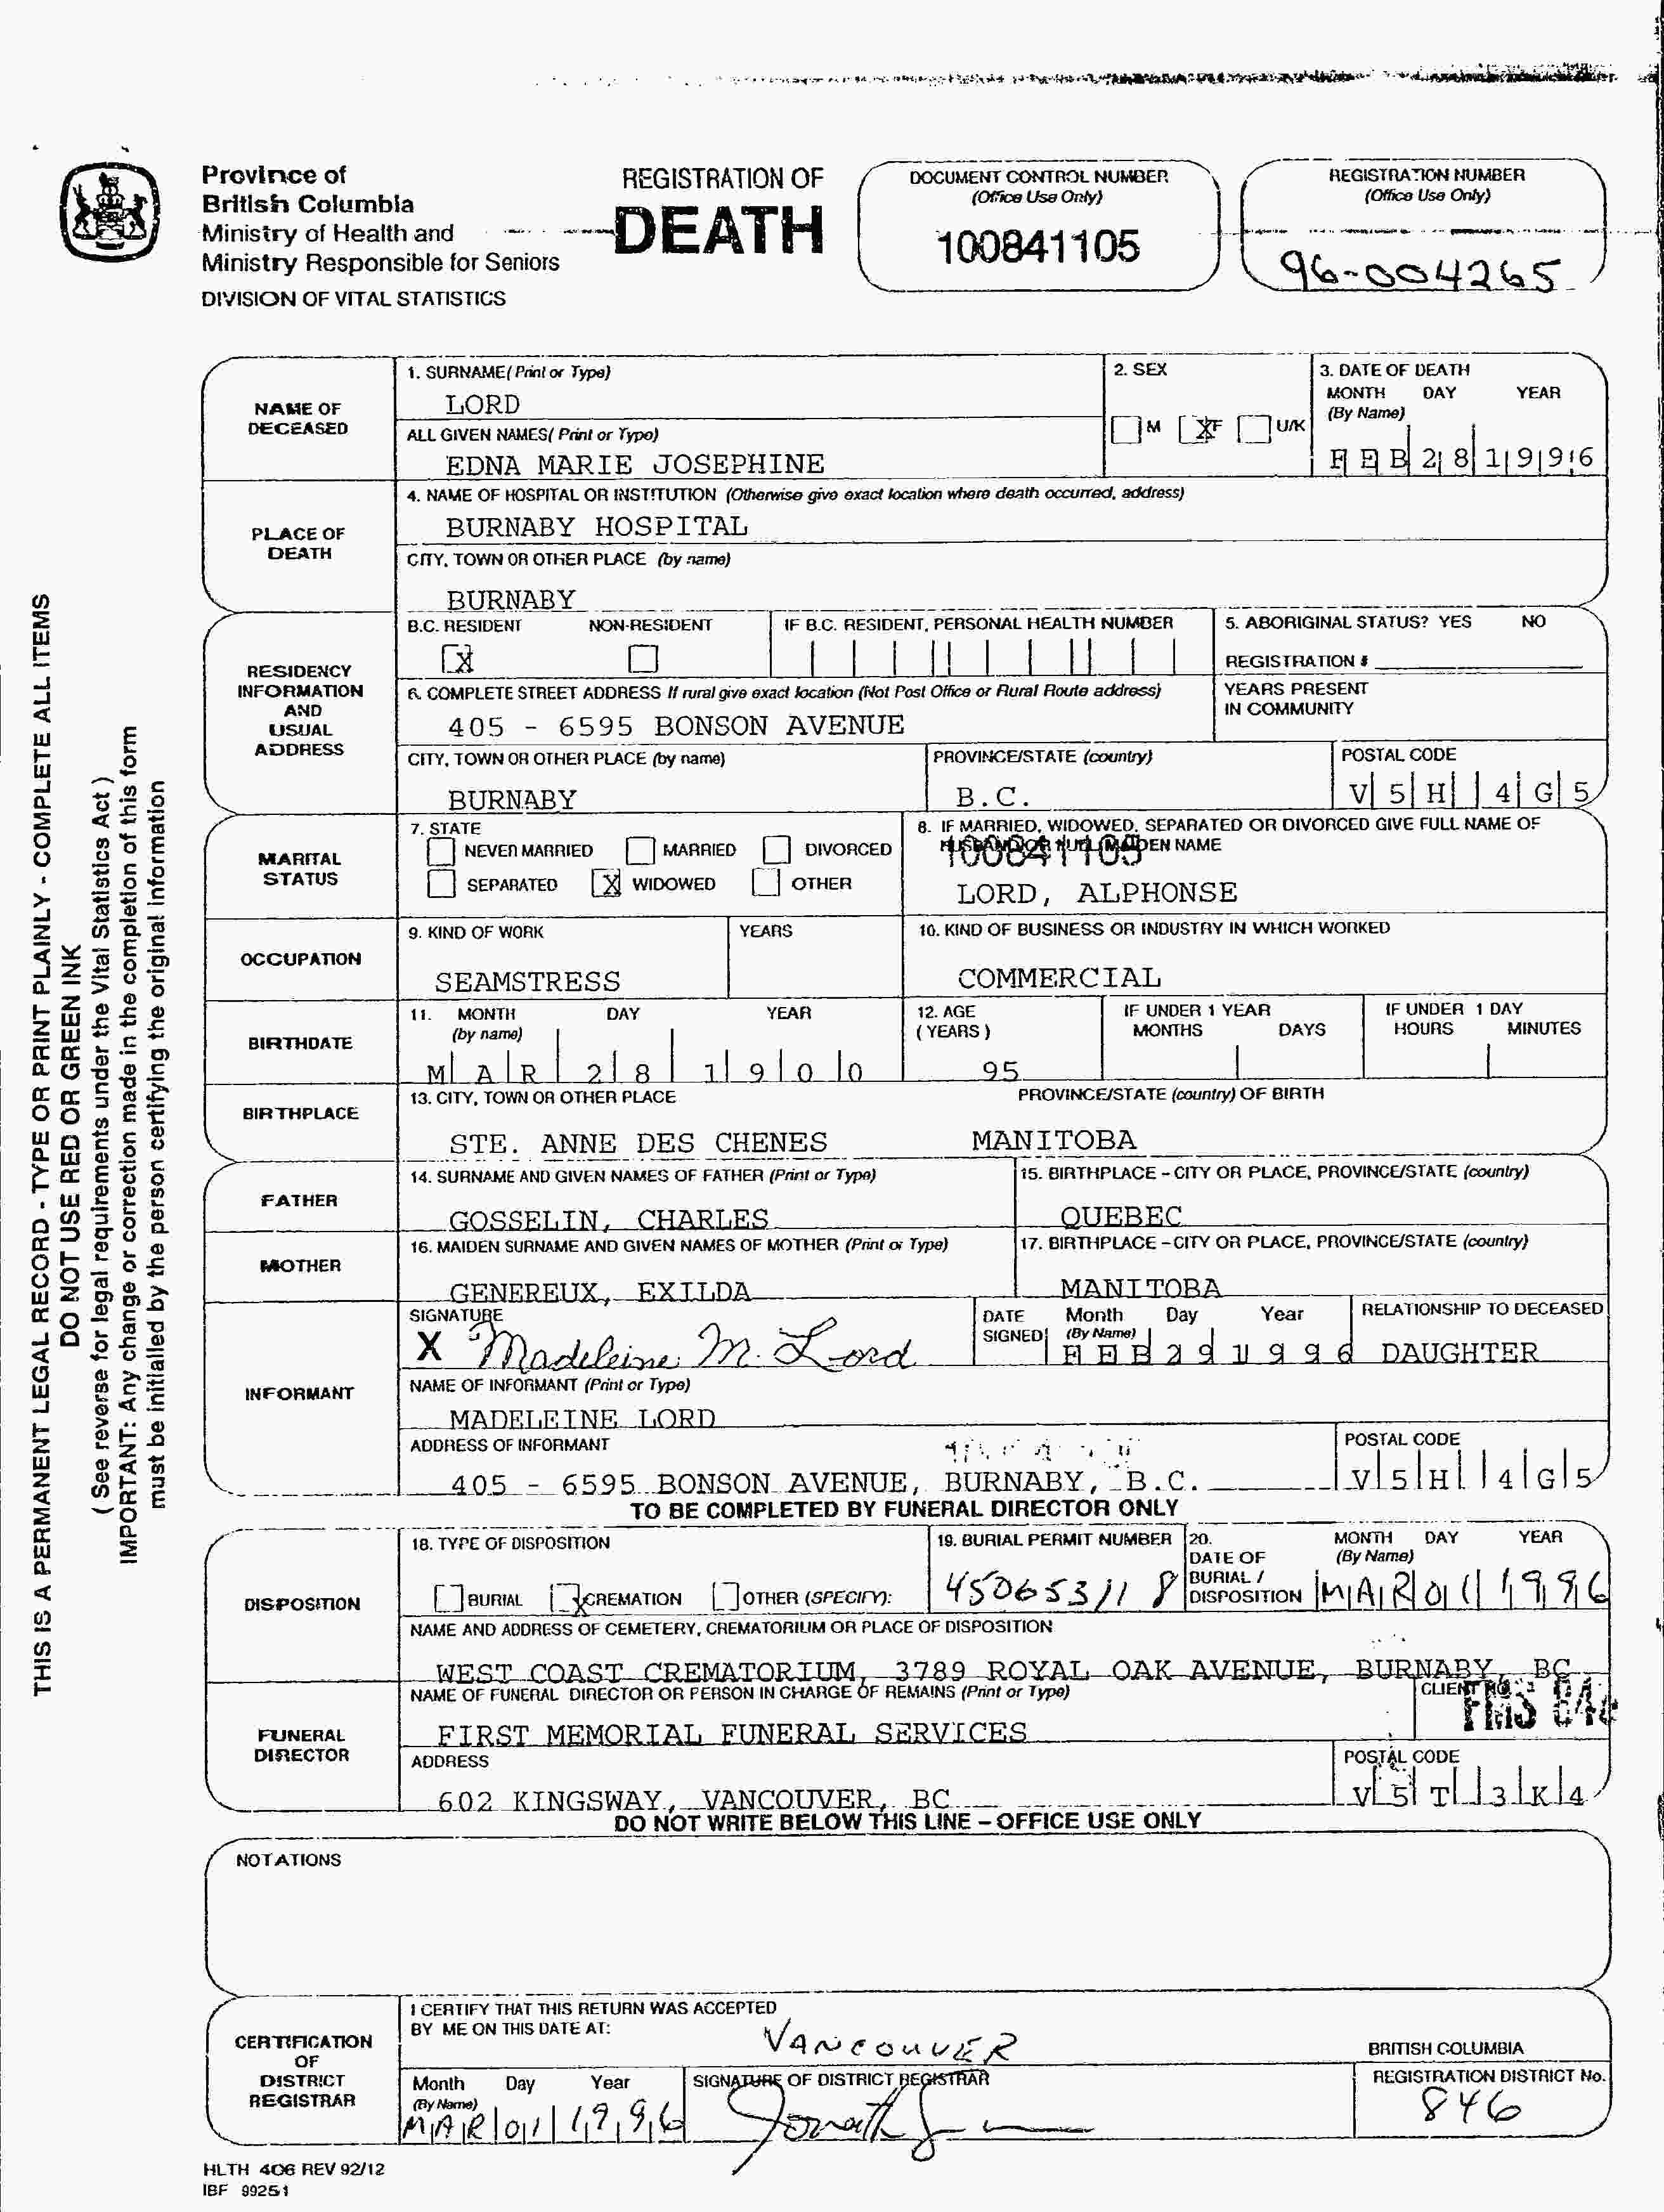 Province of
British Columbia
Ministry of Health and
Ministry Responsible for Seniors
DIVISION OF VITAL STATISTICS
REGISTRATION OF
DEATH
DOCUMENT CONTROL NUMBER
(Office Use Only)
100841105
REGISTRATION NUMBER
(Office Use Only)
96-004265
THIS IS A PERMANENT LEGAL RECORD - TYPE OR PRINT PLAINLY - COMPLETE ALL ITEMS
DO NOT USE RED OR GREEN INK
( See reverse for legal requirements under the Vital Statistics Act )
IMPORTANT: Any change or correction made in the completion of this form
must be initialled by the person certifying the original information
NAME OF
DECEASED
1. SURNAME( Print or Type)
LORD
ALL GIVEN NAMES( Print or Type)
EDNA MARIE JOSEPHINE
2. SEX
M X F U/K
3. DATE OF DEATH
MONTH DAY YEAR
(By Name)
FEB 28 1996
PLACE OF
DEATH
4. NAME OF HOSPITAL OR INSTITUTION (Otherwise give exact location where death occurred, address)
BURNABY HOSPITAL
CITY, TOWN OR OTHER PLACE (by name)
BURNABY
RESIDENCY
INFORMATION
AND
USUAL
ADDRESS
B.C. RESIDENT NON-RESIDENT
X
IF B.C. RESIDENT, PERSONAL HEALTH NUMBER
5. ABORIGINAL STATUS? YES NO
REGISTRATION #
YEARS PRESENT
IN COMMUNITY
6. COMPLETE STREET ADDRESS If rural give exact location (Not Post Office or Rural Route address)
405 - 6595 BONSON AVENUE
CITY, TOWN OR OTHER PLACE (by name)
BURNABY
PROVINCE/STATE (country)
B.C.
POSTAL CODE
V5H 4G5
MARITAL
STATUS
7. STATE
NEVER MARRIED MARRIED DIVORCED
SEPARATED X WIDOWED OTHER
8. IF MARRIED, WIDOWED, SEPARATED OR DIVORCED GIVE FULL NAME OF
HUSBAND OR FULL MAIDEN NAME
100841105
LORD, ALPHONSE
OCCUPATION
9. KIND OF WORK YEARS
SEAMSTRESS
10. KIND OF BUSINESS OR INDUSTRY IN WHICH WORKED
COMMERCIAL
BIRTHDATE
11. MONTH DAY YEAR
(by name)
MAR 28 1900
12. AGE
( YEARS )
95
IF UNDER 1 YEAR
MONTHS DAYS
IF UNDER 1 DAY
HOURS MINUTES
BIRTHPLACE
13. CITY, TOWN OR OTHER PLACE
STE. ANNE DES CHENES
PROVINCE/STATE (country) OF BIRTH
MANITOBA
FATHER
14. SURNAME AND GIVEN NAMES OF FATHER (Print or Type)
GOSSELIN, CHARLES
15. BIRTHPLACE - CITY OR PLACE, PROVINCE/STATE (country)
QUEBEC
MOTHER
16. MAIDEN SURNAME AND GIVEN NAMES OF MOTHER (Print or Type)
GENEREUX, EXILDA
17. BIRTHPLACE - CITY OR PLACE, PROVINCE/STATE (country)
MANITOBA
INFORMANT
SIGNATURE
X Madeleine M. Lord
DATE
SIGNED
Month Day Year
(By Name)
FEB 29 1996
RELATIONSHIP TO DECEASED
DAUGHTER
NAME OF INFORMANT (Print or Type)
MADELEINE LORD
ADDRESS OF INFORMANT
405 - 6595 BONSON AVENUE, BURNABY, B.C.
POSTAL CODE
V5H 4G5
TO BE COMPLETED BY FUNERAL DIRECTOR ONLY
DISPOSITION
18. TYPE OF DISPOSITION
BURIAL X CREMATION OTHER (SPECIFY):
19. BURIAL PERMIT NUMBER
450653118
20.
DATE OF
BURIAL /
DISPOSITION
MONTH DAY YEAR
(By Name)
MAR 01 1996
NAME AND ADDRESS OF CEMETERY, CREMATORIUM OR PLACE OF DISPOSITION
WEST COAST CREMATORIUM, 3789 ROYAL OAK AVENUE, BURNABY, BC
FUNERAL
DIRECTOR
NAME OF FUNERAL DIRECTOR OR PERSON IN CHARGE OF REMAINS (Print or Type)
FIRST MEMORIAL FUNERAL SERVICES
CLIENT NO.
ADDRESS
602 KINGSWAY, VANCOUVER, BC
POSTAL CODE
V5T 3K4
DO NOT WRITE BELOW THIS LINE - OFFICE USE ONLY
NOTATIONS
CERTIFICATION
OF
DISTRICT
REGISTRAR
I CERTIFY THAT THIS RETURN WAS ACCEPTED
BY ME ON THIS DATE AT:
VANCOUVER
BRITISH COLUMBIA
Month Day Year
(By Name)
MAR 01 1996
SIGNATURE OF DISTRICT REGISTRAR
REGISTRATION DISTRICT No.
846
HLTH 406 REV 92/12
IBF 99251